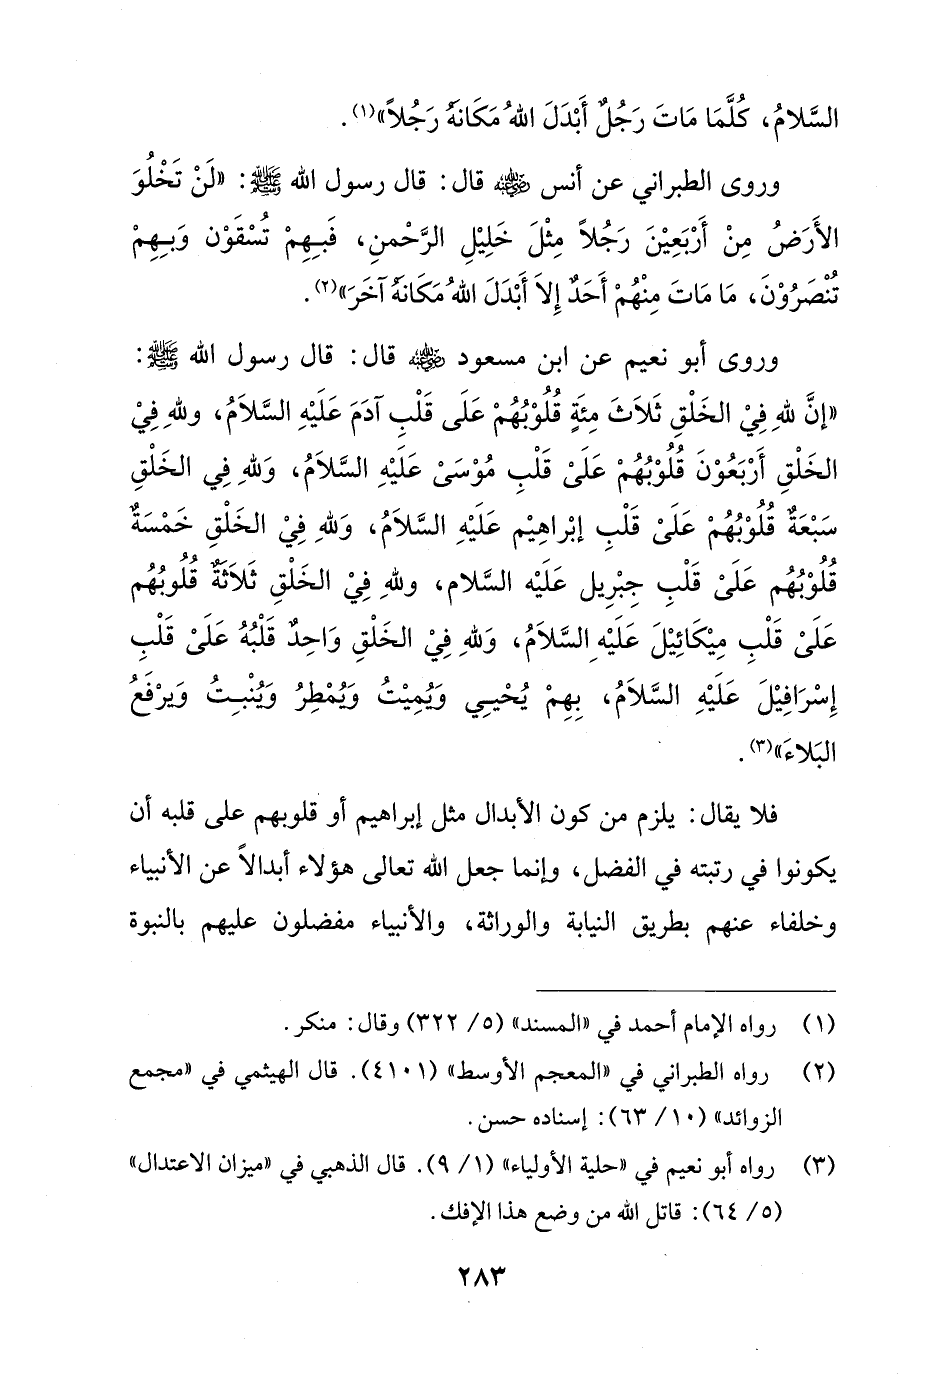 السَّلامُ، كُلَّمَا مَاتَ رَجُلٌ أَبْدَلَ اللهُ مَكَانَهُ رَجُلاً»(١).
وروى الطبراني عن أنس ﵁ قال: قال رسول الله ﷺ: «لَنْ تَخْلُوَ
الأَرَضُ مِنْ أَرْبَعِيْنَ رَجُلاً مِثْلَ خَلِيْلِ الرَّحْمنِ، فَبِهِمْ تُسْقَوْن وَبِهِمْ
تُنْصَرُوْنَ، مَا مَاتَ مِنْهُمْ أَحَدٌ إِلاَ أَبْدَلَ اللهُ مَكَانَهُ آخَرَ»(٢).
وروى أبو نعيم عن ابن مسعود ﵁ قال: قال رسول الله ﷺ:
«إنَّ للهِ فِيْ الخَلْقِ ثَلاَثَ مِئَةٍ قُلُوْبُهُمْ عَلَى قَلْبِ آدَمَ عَلَيْهِ السَّلاَمُ، وللهِ فِيْ
الخَلْقِ أَرْبَعُوْنَ قُلُوْبُهُمْ عَلَىْ قَلْبِ مُوْسَىْ عَلَيْهِ السَّلاَمُ، وَللهِ فِي الخَلْقِ
سَبْعَةٌ قُلُوْبُهُمْ عَلَىْ قَلْبِ إبْراهِيْم عَلَيْهِ السَّلاَمُ، وَللهِ فِيْ الخَلْقِ خَمْسَةٌ
قُلُوْبُهُم عَلَىْ قَلْبِ جِبْرِيل عَلَيْه السَّلام، وللهِ فِيْ الخَلْقِ ثَلاَثَةٌ قُلُوبُهُم
عَلَىْ قَلْبِ مِيْكَائِيْلَ عَلَيْهِ السَّلاَمُ، وَللهِ فِيْ الخَلْقِ وَاحِدٌ قَلْبُهُ عَلَىْ قَلْبِ
إسْرَافِيْلَ عَلَيْهِ السَّلاَمُ، بِهِمْ يُحْيِي وَيُمِيْتُ وَيُمْطِرُ وَيُنْبِتُ وَيرْفَعُ
البَلاءَ»(٣).
فلا يقال: يلزم من كون الأبدال مثل إبراهيم أو قلوبهم على قلبه أن
يكونوا في رتبته في الفضل، وإنما جعل الله تعالى هؤلاء أبدالاً عن الأنبياء
وخلفاء عنهم بطريق النيابة والوراثة، والأنبياء مفضلون عليهم بالنبوة
(١) رواه الإمام أحمد في «المسند» (٥/ ٣٢٢) وقال: منكر.
(٢) رواه الطبراني في «المعجم الأوسط» (٤١٠١). قال الهيثمي في «مجمع
الزوائد» (١٠/ ٦٣): إسناده حسن.
(٣) رواه أبو نعيم في «حلية الأولياء» (١/ ٩). قال الذهبي في «ميزان الاعتدال»
(٥/ ٦٤): قاتل الله من وضع هذا الإفك.
٢٨٣